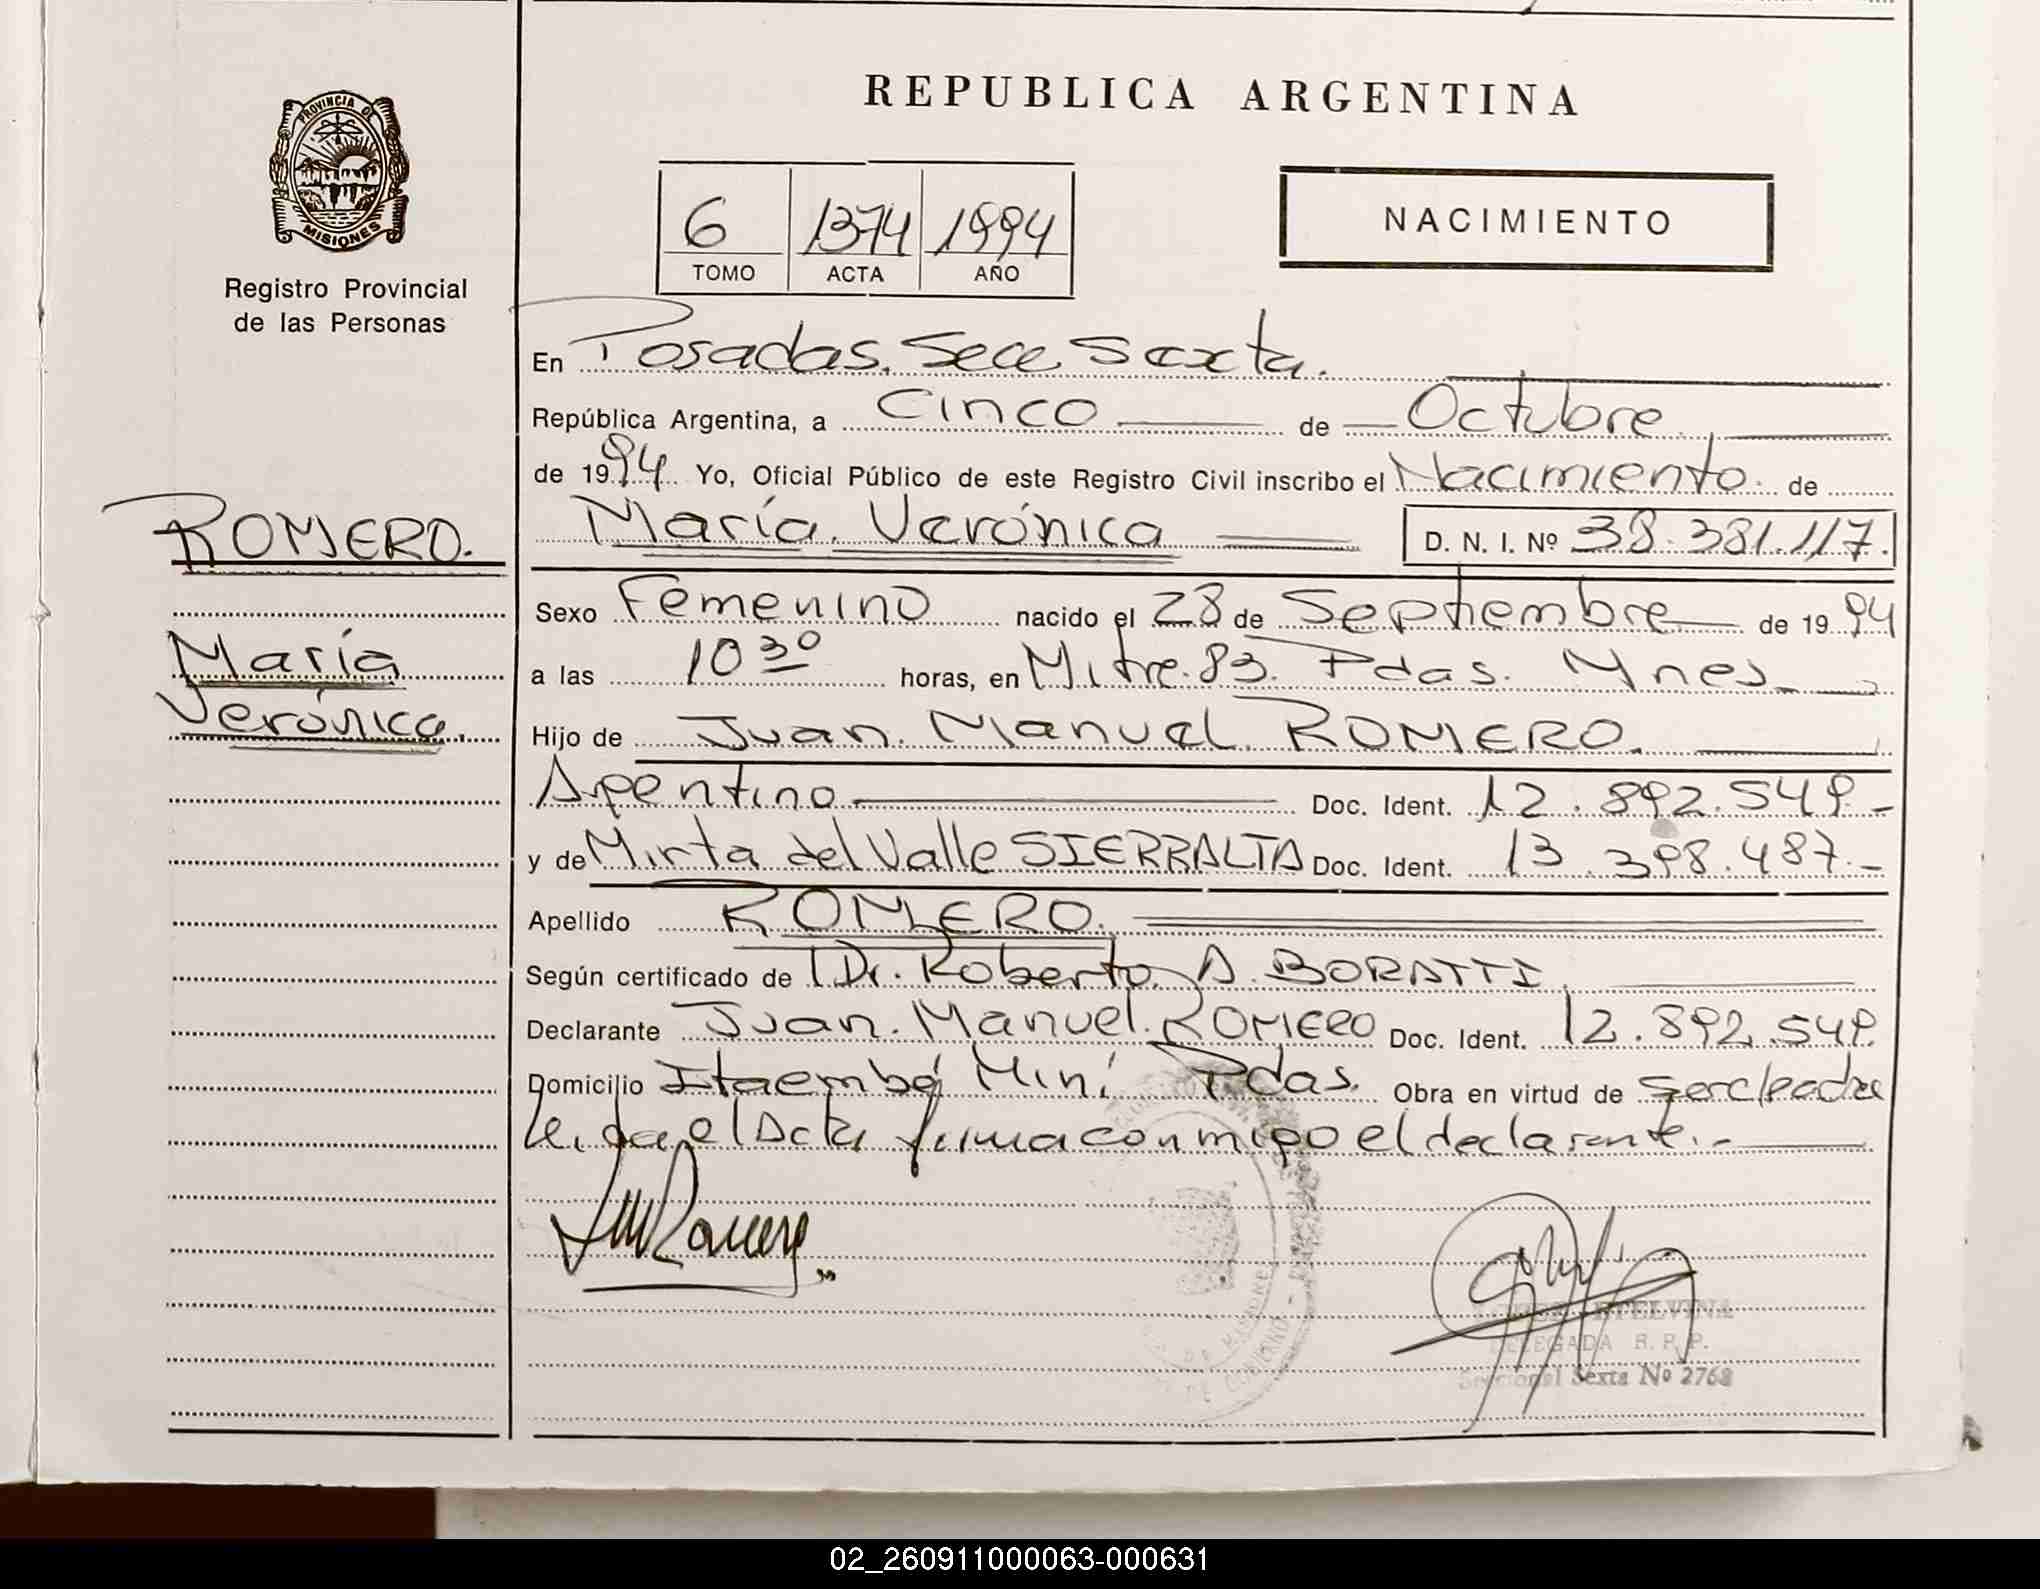 REPUBLICA ARGENTINA
PROVINCIA DE
MISIONES
Registro Provincial
de las Personas
6 1374 1994
TOMO ACTA AÑO
NACIMIENTO
En Posadas. Secc. Sexta.
República Argentina, a Cinco de Octubre
de 1994 Yo, Oficial Público de este Registro Civil inscribo el Nacimiento de
María Verónica D. N. I. Nº 38.381.117.
ROMERO.
María
Verónica.
Sexo Femenino nacido el 28 de Septiembre de 1994
a las 10 30 horas, en Mitre 83. Pdas. Mnes
Hijo de Juan Manuel ROMERO.
Argentino Doc. Ident. 12.892.549.-
y de Mirta del Valle SIERRALTA Doc. Ident. 13.398.487.-
Apellido ROMERO.
Según certificado de Dr. Roberto A. BORATTI
Declarante Juan Manuel ROMERO Doc. Ident. 12.892.549.
Domicilio Itaembé Miní Pdas. Obra en virtud de
Leida el Acta firma conmigo el declarante.-
ETELVINA
DELEGADA R. P. P.
Seccional Sexta Nº 2768
02_260911000063-000631